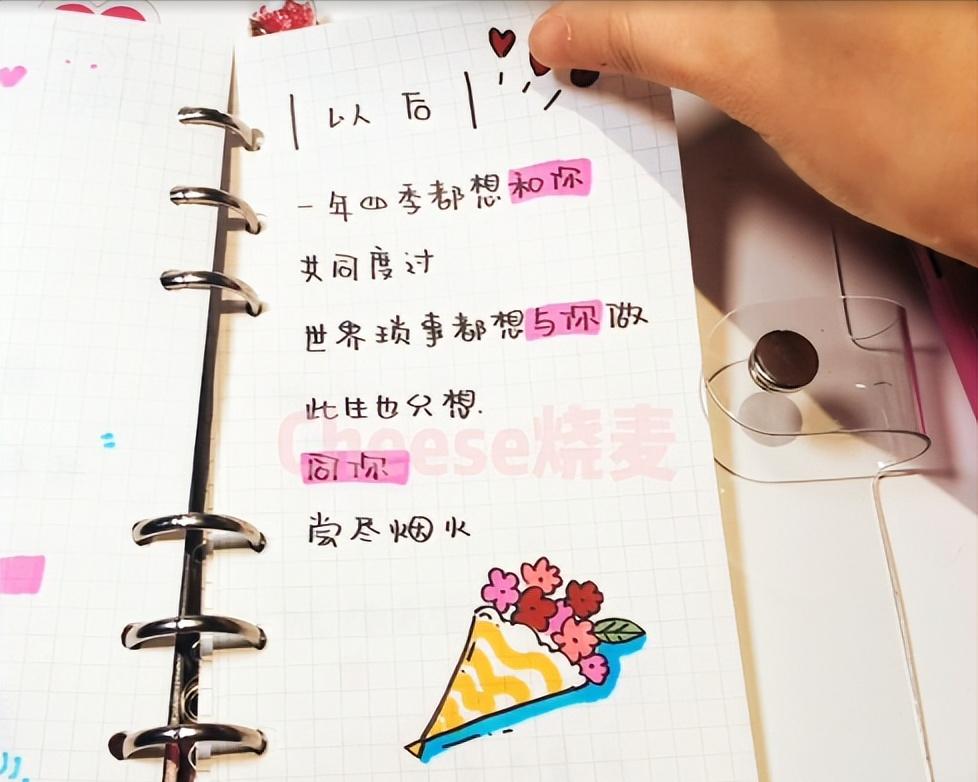 以后
一年四季都想和你
共同度过
世界琐事都想与你做
此生也只想.
同你
尝尽烟火
Cheese烧麦